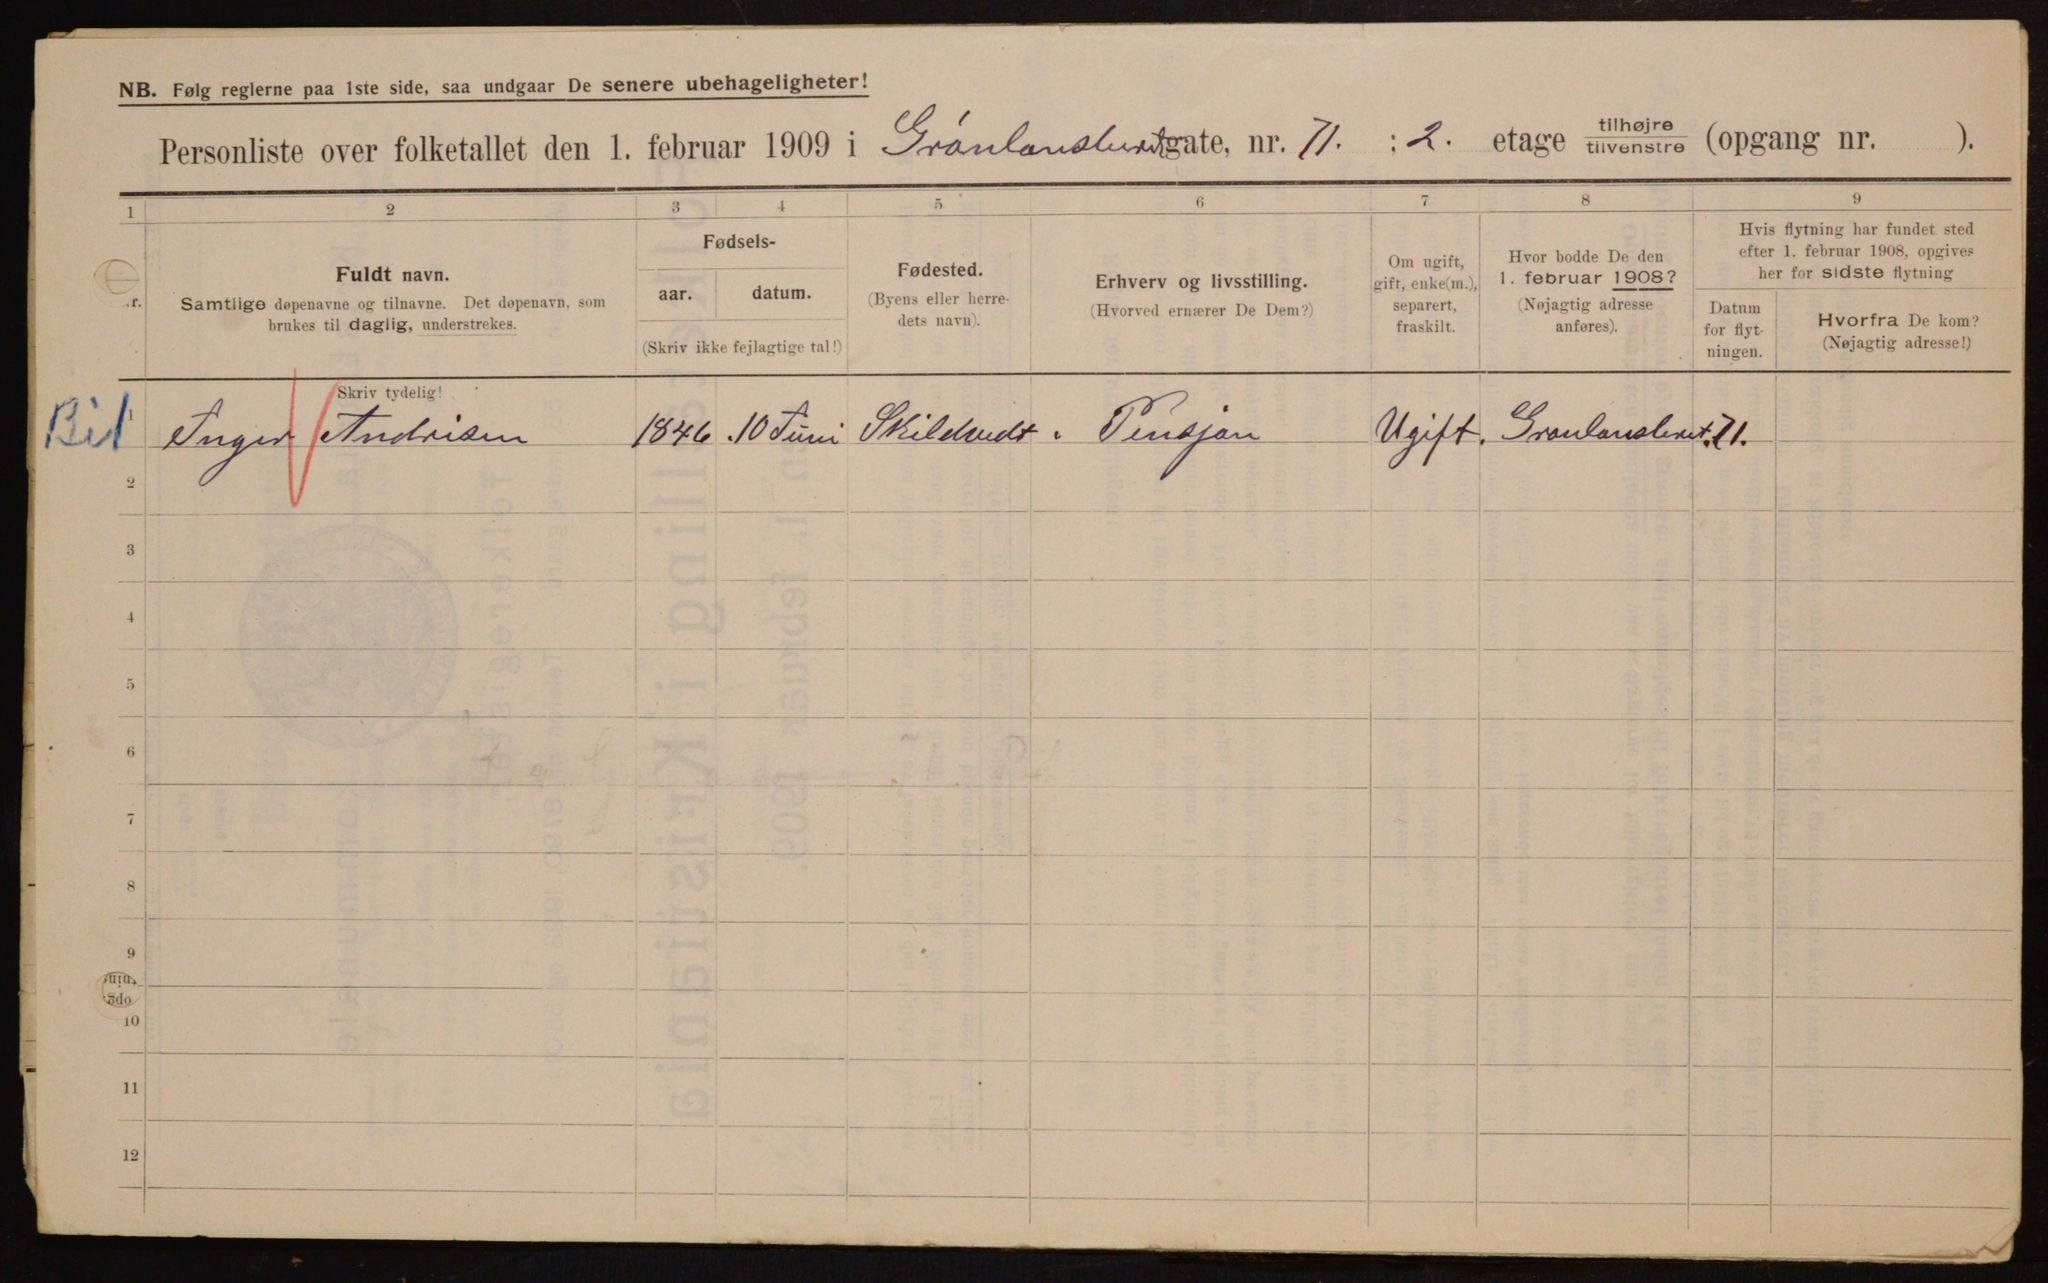 NB. Følg reglerne paa 1ste side, saa undgaar De senere ubehageligheter!
Personliste over folketallet den 1. februar 1909 i Grónlansleret gate, nr. 71. : 2. etage tilhøjre tilvenstre (opgang nr. ).
1 2 3 4 5 6 7 8 9
Fuldt navn.
Samtlige døpenavne og tilnavne. Det døpenavn, som
brukes til daglig, understrekes.
Fødsels-
aar. datum.
(Skriv ikke fejlagtige tal!)
Fødested.
(Byens eller herre-
dets navn).
Erhverv og livsstilling.
(Hvorved ernærer De Dem?)
Om ugift,
gift, enke(m.),
separert,
fraskilt.
Hvor bodde De den
1. februar 1908?
(Nøjagtig adresse
anføres).
Hvis flytning har fundet sted
efter 1. februar 1908, opgives
her for sidste flytning
Datum
for flyt-
ningen.
Hvorfra De kom?
(Nøjagtig adresse!)
r.
Skriv tydelig!
1 Inger Andrisen 1846 10 Juni Skildvedt Pensjon Ugift. Gronlansleret. 71.
2
3
4
5
6
7
8
9
10
11
12